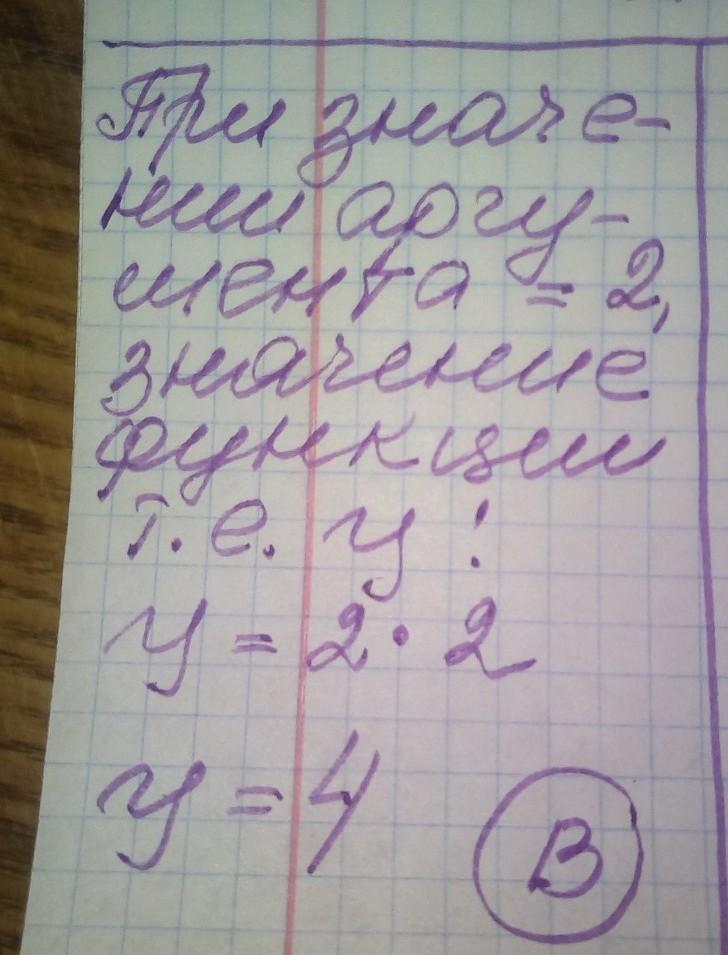 При значе-
нии аргу-
мента = 2,
значение
функции
т.е. y:
y = 2 · 2
y = 4
В